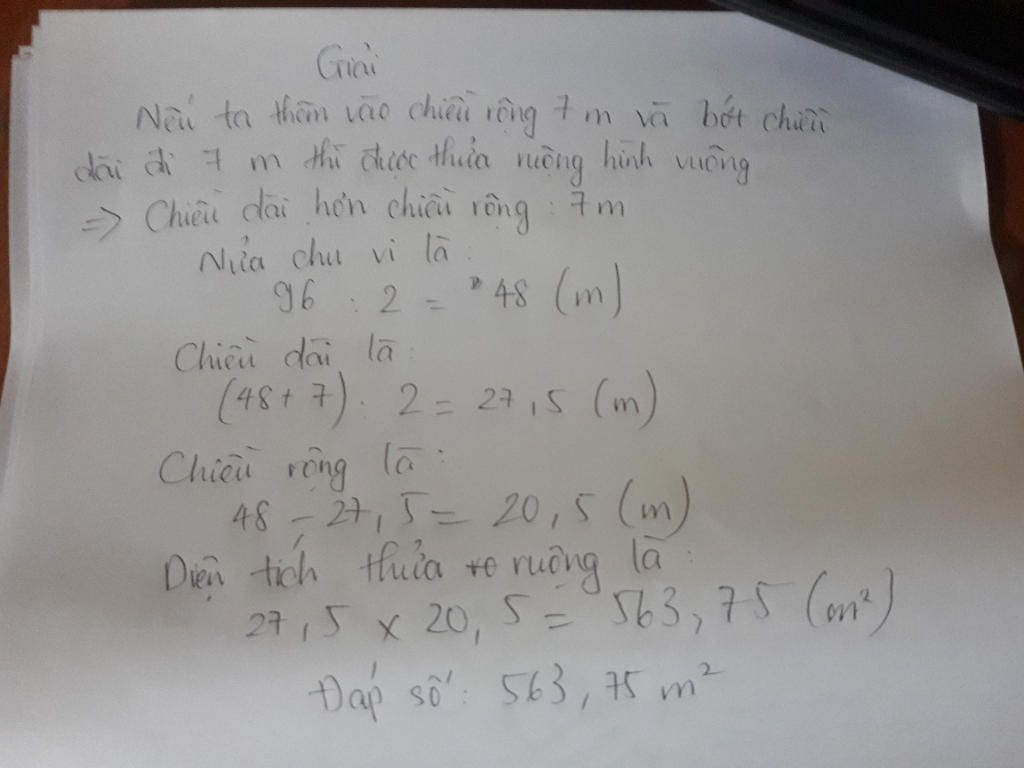 Giải
Nếu ta thêm vào chiều rộng 7 m và bớt chiều
dài đi 7 m thì được thửa ruộng hình vuông
=> Chiều dài hơn chiều rộng : 7m
Nửa chu vi là :
96 : 2 = 48 (m)
Chiều dài là :
(48 + 7) : 2 = 27,5 (m)
Chiều rộng là :
48 - 27,5 = 20,5 (m)
Diện tích thửa ruộng là :
27,5 x 20,5 = 563,75 (m²)
Đáp số : 563,75 m²